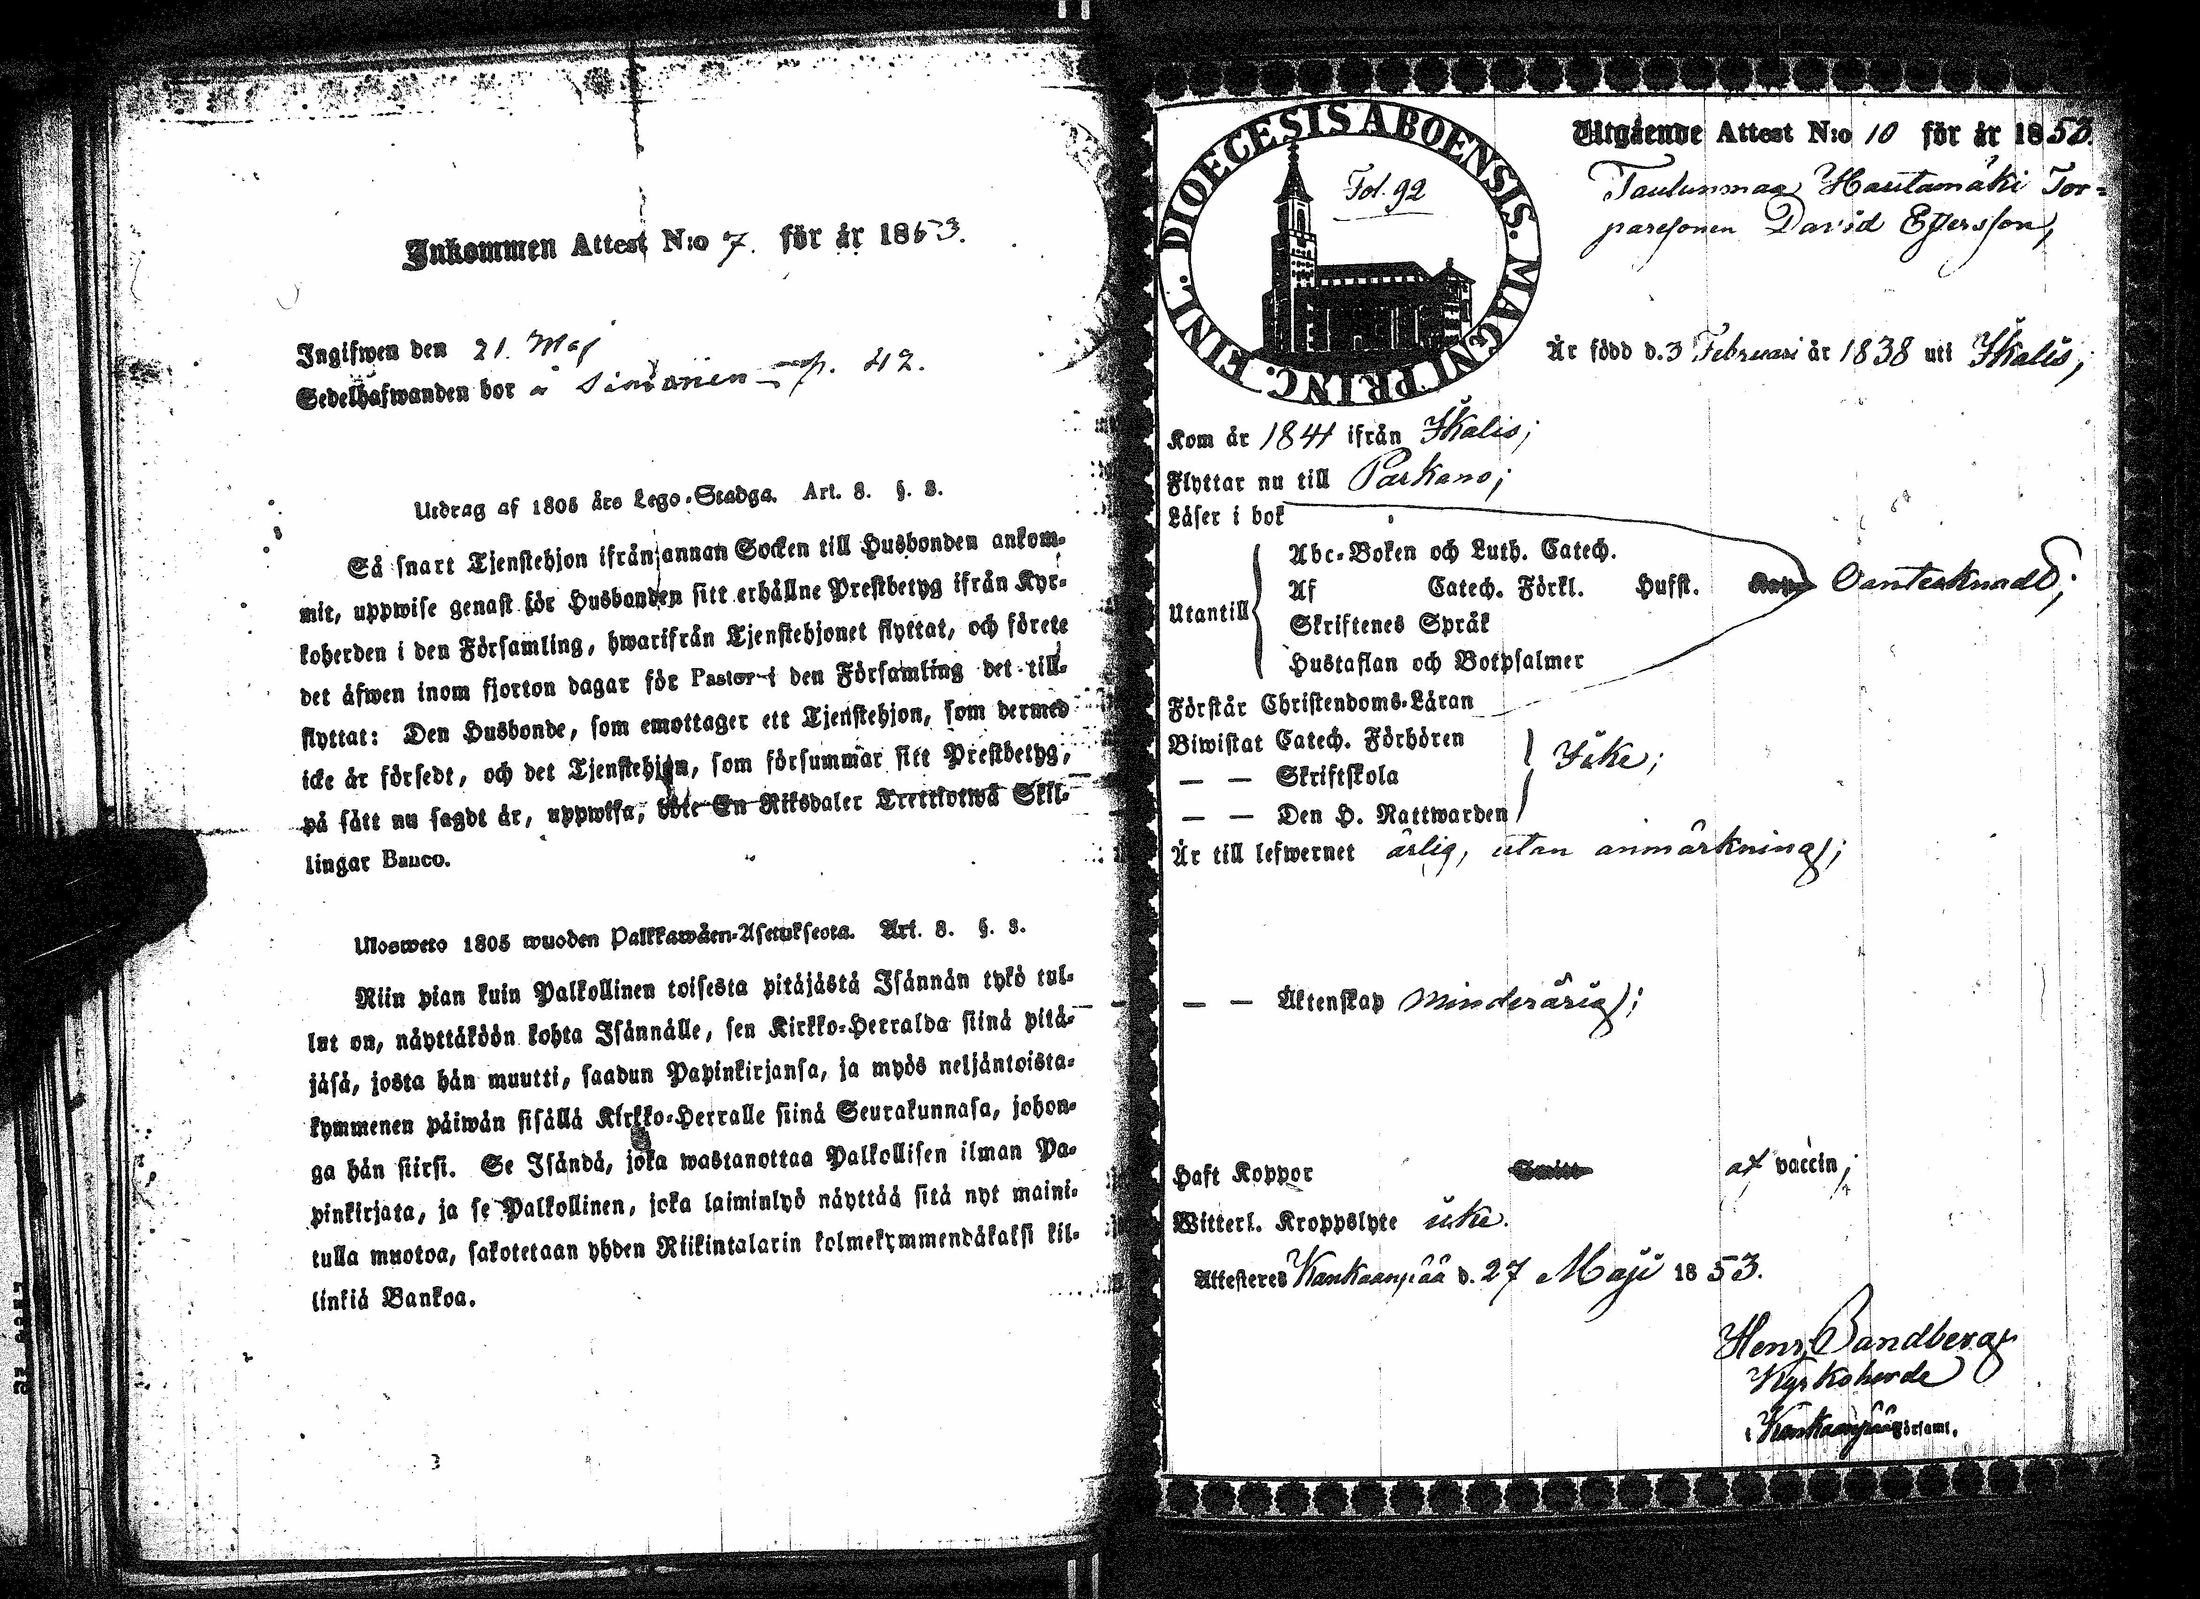 Inkommen Attest N:o 7. för år 1853.
Ingifwen den 21. Maj
Sedelhafwanden bor å p. 42.
Utdrag af 1805 års Lego-Stadga. Art. 8. §. 3.
Så snart Tjenstehjon ifrån annan Socken till Husbonden ankom-
mit, uppwise genast för Husbonden sitt erhållne Prestbetyg ifrån Kyr-
koherden i den Församling, hwarifrån Tjenstehjonet flyttat, och förete
det äfwen inom fjorton dagar för Pastor i den Församling det till-
flyttat: Den Husbonde, som emottager ett Tjenstehjon, som dermed
icke är försedt, och det Tjenstehjon, som försummar sitt Prestbetyg,
på sätt nu sagdt är, uppwisa, böte En Riksdaler Trettiotwå Skil-
lingar Banco.
Ulosweto 1805 wuoden Palkkawäen-Asetuksesta. Art. 8. §. 3.
Niin pian kuin Palkollinen toisesta pitäjästä Isännän tykö tul-
lut on, näyttäköön kohta Isännälle, sen Kirkko-Herralda siinä pitä-
jäsä, josta hän muutti, saadun Papinkirjansa, ja myös neljäntoista-
kymmenen päiwän sisällä Kirkko-Herralle siinä Seurakunnasa, johon-
ga hän siirsi. Se Isändä, joka wastanottaa Palkollisen ilman Pa-
pinkirjata, ja se Palkollinen, joka laiminlyö näyttää sitä nyt maini-
tulla muotoa, sakotetaan yhden Riikintalarin kolmekymmendäkaksi kil-
linkiä Bankoa.
DIOECESIS ABOENSIS. MAGNI PRINC. FINL.
Fol. 92
Utgående Attest N:o 10 för år 1853.
Taulunmaa Hautamäki Tor-
paresonen David Efersson,
Är född d. 3 Februari år 1838 uti Ikalis;
Kom år 1841 ifrån Ikalis;
Flyttar nu till Parkano;
Läser i bok
Abc-Boken och Luth. Catech.
Utantill Af Catech. Förkl. Hufst. Oantecknadt;
Skriftenes Språk
Hustaflan och Botpsalmer
Förstår Christendoms-Läran
Biwistat Catech. Förhören
— — Skriftskola Icke;
— — Den H. Nattwarden
Är till lefwernet ärlig, utan anmärkning;
— — Äktenskap minderårig;
Haft Koppor af vaccin;
Witterl. Kroppslyte icke.
Attesteres Kankaanpää d. 27 Maji 1853.
Henr. Sandberg
Kyrkoherde
i Kankaanpää Församl.